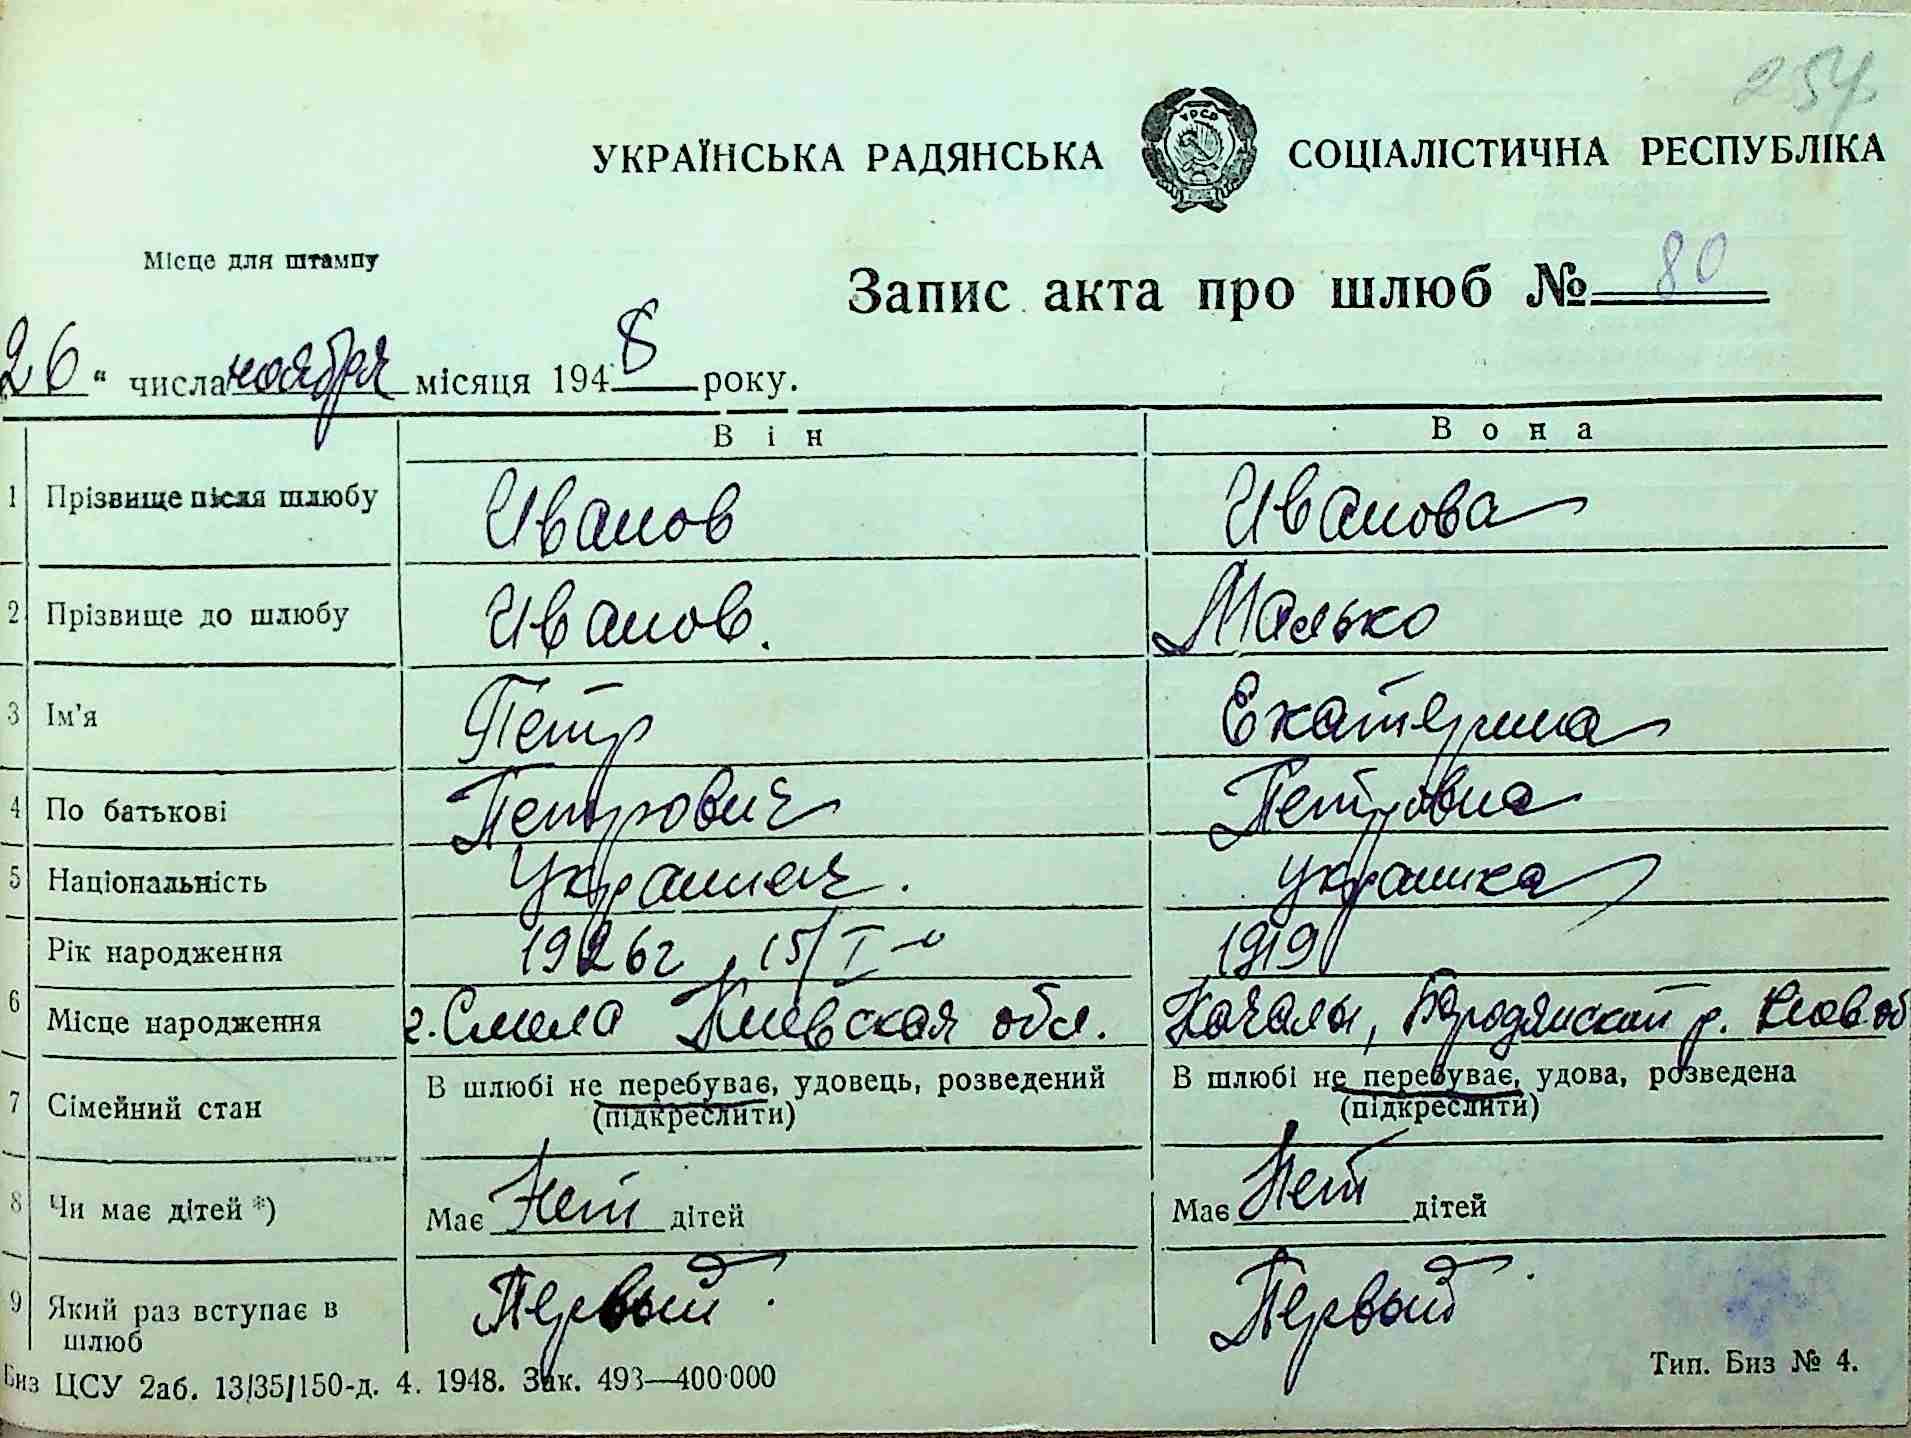 254
УКРАЇНСЬКА РАДЯНСЬКА СОЦІАЛІСТИЧНА РЕСПУБЛІКА
УРСР
Місце для штампу
Запис акта про шлюб № 80
26 " числа ноября місяця 1948 року.
Він Вона
1 Прізвище після шлюбу Иванов Иванова
2 Прізвище до шлюбу Иванов. Малько
3 Ім'я Петр Екатерина
4 По батькові Петрович Петровна
5 Національність Украинец. украинка
Рік народження 1926г 15/I 1919
6 Місце народження г. Смела Киевская обл. Качалы, Бородянский р. Киев. об
7 Сімейний стан В шлюбі не перебуває, удовець, розведений В шлюбі не перебуває, удова, розведена
(підкреслити) (підкреслити)
8 Чи має дітей *) Має Нет дітей Має Нет дітей
9 Який раз вступає в Первый. Первый.
шлюб
Биз ЦСУ 2аб. 13/35/150-д. 4. 1948. Зак. 493—400·000 Тип. Биз № 4.